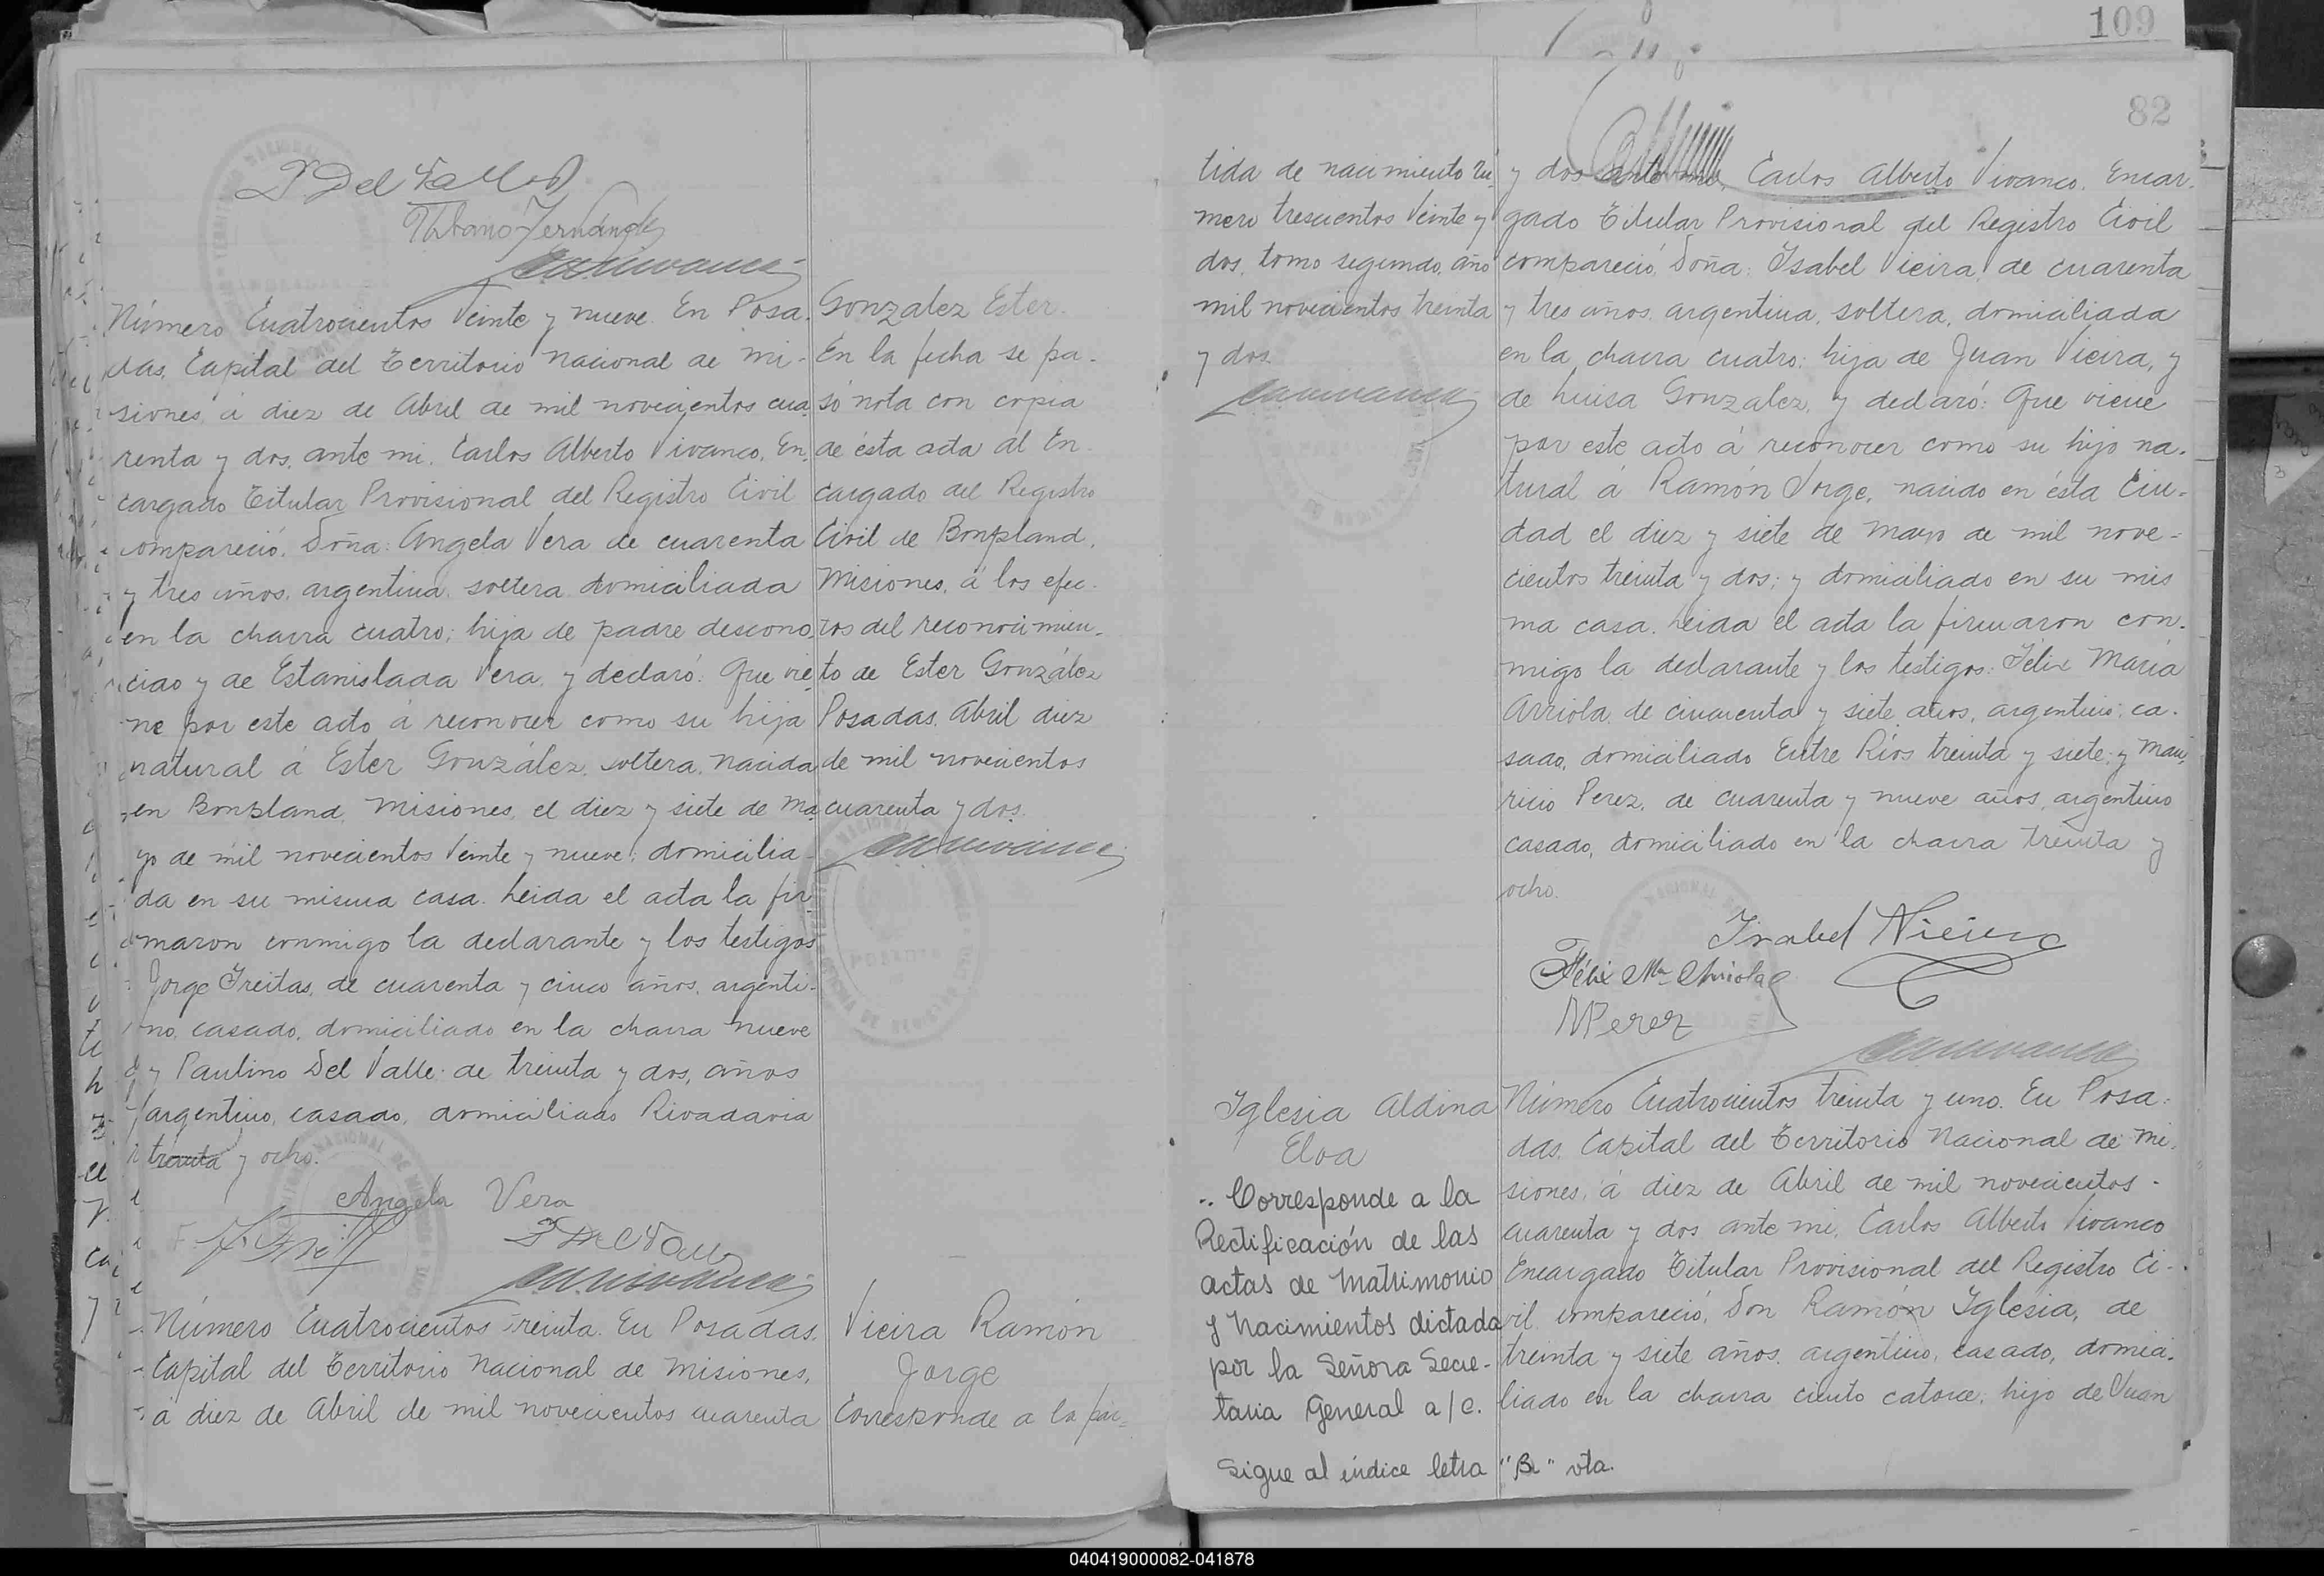 109
82
P Del Valle
Número Cuatrocientos Veinte y nueve. En Posa-
das, Capital del Territorio Nacional de Mi-
siones, á diez de Abril de mil novecientos cua-
renta y dos, ante mi, Carlos Alberto Vivanco, En-
cargado Titular Provisional del Registro Civil
compareció, Doña: Angela Vera de cuarenta
y tres años, argentina, soltera, domiciliada
en la chacra cuatro; hija de padre descono-
cido y de Estanislada Vera, y declaró: Que vie-
ne por este acto á reconocer como su hija
natural á Ester González, soltera, nacida
en Bonpland, Misiones, el diez y siete de Ma-
yo de mil novecientos Veinte y nueve; domicilia-
da en su misma casa. Leida el acta la fir-
maron conmigo la declarante y los testigos
Jorge Freitas, de cuarenta y cinco años, argenti-
no, casado, domiciliado en la chacra nueve
y Paulino Del Valle de treinta y dos, años
argentino, casado, domiciliado Rivadavia
treinta y ocho.
Angela Vera
Gonzalez Ester.
En la fecha se pa-
só nota con copia
de ésta acta al En-
cargado del Registro
Civil de Bonpland,
Misiones, á los efec-
tos del reconocimien-
to de Ester González
Posadas, Abril diez
de mil novecientos
cuarenta y dos.
Número Cuatrocientos treinta. En Posadas,
Capital del Territorio Nacional de Misiones,
á diez de Abril de mil novecientos cuarenta
Vieira Ramón
Jorge
Corresponde a la par-
tida de nacimiento nú-
mero trescientos Veinte y
dos, tomo segundo, año
mil novecientos treinta
y dos.
y dos ante mi, Carlos Alberto Vivanco, Encar-
gado Titular Provisional del Registro Civil
compareció, Doña: Isabel Vieira, de cuarenta
y tres años, argentina, soltera, domiciliada
en la chacra cuatro: hija de Juan Vieira, y
de Luisa Gonzalez, y declaró: Que viene
por este acto á reconocer como su hijo na-
tural á Ramón Jorge, nacido en ésta Ciu-
dad el diez y siete de Mayo de mil nove-
cientos treinta y dos; y domiciliado en su mis
ma casa. Leida el acta la firmaron con-
migo la declarante y los testigos: Félix María
Arriola, de cincuenta y siete años, argentino, ca-
sado, domiciliado Entre Ríos treinta y siete; y Mau-
ricio Perez, de cuarenta y nueve años, argentino
casado, domiciliado en la chacra treinta y
ocho.
Isabel Vieira
Félix Ma Arriola
M Perez
Iglesia Aldina
Elva
.. Corresponde a la
Rectificación de las
actas de Matrimonio
y Nacimientos dictada
por la Señora Secre-
taria General a/c.
Sigue al índice letra "B" vta.
Número Cuatrocientos treinta y uno. En Posa-
das, Capital del Territorio Nacional de Mi-
siones, á diez de Abril de mil novecientos -
cuarenta y dos ante mi, Carlos Alberto Vivanco
Encargado Titular Provisional del Registro Ci-
vil compareció, Don Ramón Iglesia, de
treinta y siete años, argentino, casado, domici-
liado en la chacra ciento catorce; hijo de Juan
040419000082-041878